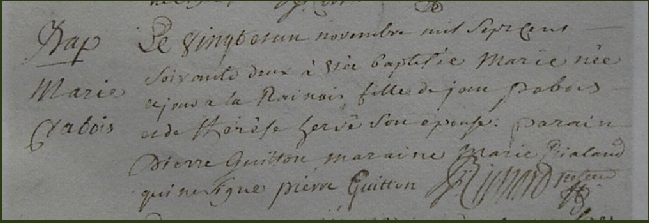 Bap
Marie
Le vingt et un novembre mil sept cens
soixante deux à été baptisée Marie née
ce jour a la Rainais fille de jean
et de thérèse hervé son epouse: parain
pierre Guitton maraine Marie
qui ne signe pierre Guitton